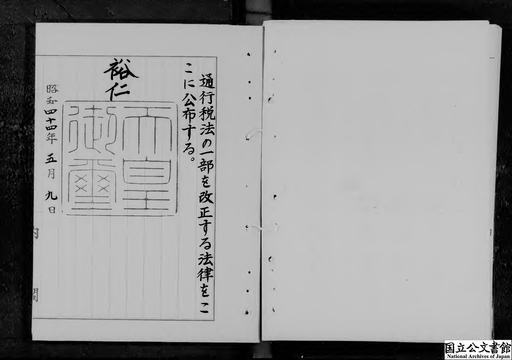 通行税法の一部を改正する法律をこ
こに公布する。
裕仁
天皇
御璽
昭和四十四年五月九日
内
閣
国立公文書館
National Archives of Japan